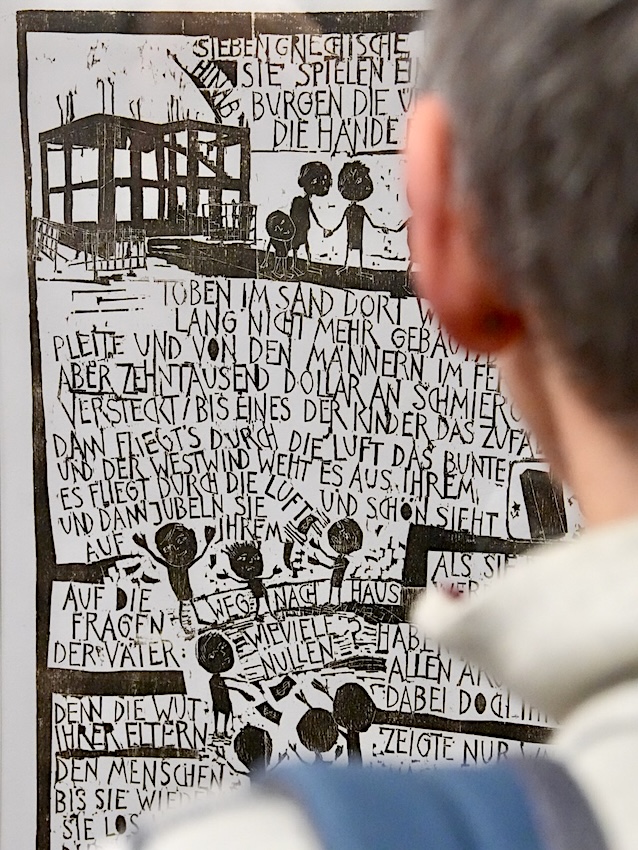 SIEBEN GRIECHISCHE
HINAB SIE SPIELEN
BURGEN DIE
DIE HÄNDE
TOBEN IM SAND DORT
LANG NICHT MEHR
PLEITE UND VON DEN MÄNNERN IM
ABER ZEHNTAUSEND DOLLAR AN
VERSTECKT / BIS EINES DER KINDER DAS
DANN FLIEGT'S DURCH DIE LUFT DAS BUNTE
UND DER WESTWIND WEHT ES AUS IHREM
ES FLIEGT DURCH DIE LÜFTE UND SCHÖN SIEHT
UND DANN JUBELN SIE
AUF IHREM
WEGE NACH HAUS
ALS
AUF DIE
FRAGEN
DER VÄTER:
WIEVIELE
NULLEN?
ALLEN
DABEI DOCH
DENN DIE WUT
IHRER ELTERN
ZEIGTE NUR
DEN MENSCHEN
BIS SIE
SIE